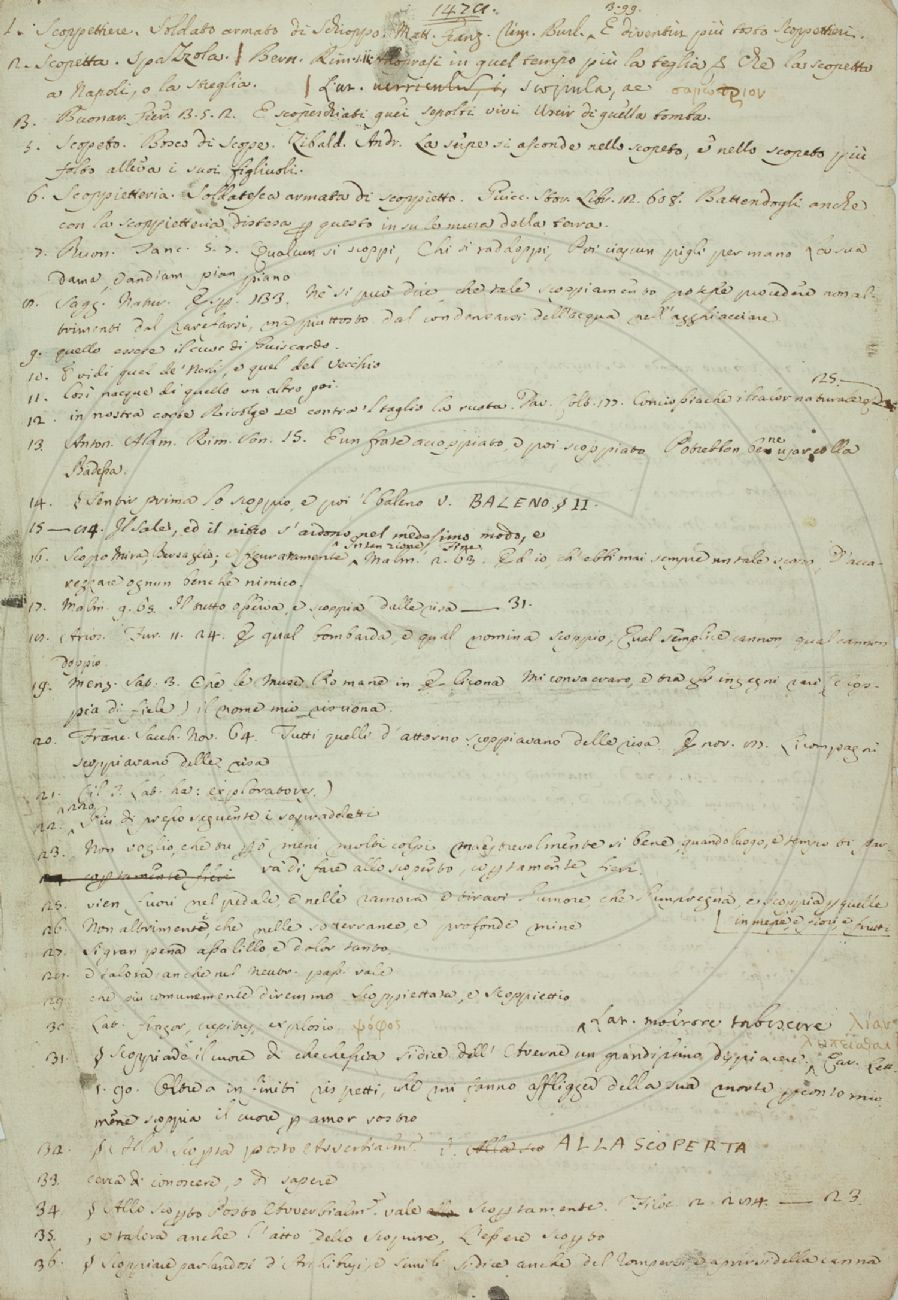 1474.
1. Scoppettiere. Soldato armato di schioppo. Matt. Franz. Rim. Burl. 3. 99. E diventin più tosto scoppettieri.
2. Scopetta. Spazzola. Bern. Rim. in quel tempo più la teglia, § Che la scopetta
a Napoli, o la streglia. Lat. scopula, ae
13. Buonar. Fier. 3. 5. 2. E scoperchiati quei sepolti vivi Uscir di quella tomba.
5. Scopeto. Bosco di scope. Zibald. Andr. La serpe si asconde nello scopeto, e nello scopeto più
folto alleva i suoi figliuoli.
6. Scoppietteria. Soldatesca armata di scoppietto. Guicc. Stor. Libr. 12. 608. Battendogli anche
con la scoppietteria distesa p questo in su le mura della terra.
7. Buon. Tanc. 5. 7. Qualcun si scoppi, Chi si raddoppi, Poi ciascun pigli per mano La sua
dama, Vandiam pian piano
8. Sagg. Natur. Esp. 133. Nè si può dire, che tale scoppiamento potesse procedere non al-
trimenti dal rarefarsi, ma piuttosto dal condensarsi dell'acqua nell'agghiacciare
9. quello essere il cuor di Guiscardo.
10. E vidi quel de' Nerli, e quel del Vecchio
11. Così nacque di quello un altro poi
12. in nostra corte Rivolge sè contra 'l taglio la ruota. Pav. 125.
13. Anton. Alam. Rim. Son. 15. E un frate accoppiato, e poi scoppiato Potrebbon bene usar colla
Badessa.
14. § Sentir prima lo scoppio, e poi 'l baleno V. BALENO § II.
15 — 14. Il sale, ed il nitro s' ardono nel medesimo modo, e
16. Scopo Mira, Bersaglio; e figuratamente Intenzione, Fine Malm. 2. 63. Ed io, ch' ebbi mai sempre un tale scopo D' acca-
rezzare ognun benchè nimico.
17. Malm. 9. 63. Il tutto osserva, e scoppia dalle risa — 31.
18. Arios. Fur. 11. 24. E qual bombarda e qual nomina scoppio, Qual semplice cannon, qual cannon
doppio.
19. Menz. Sat. 3. Che le Muse Romane in Elicona Mi consacraro, e tra gl' ingegni rari (Cop-
pia di fiele) il nome mio risuona.
20. Franc. Sacch. Nov. 64. Tutti quelli d' attorno scoppiavano delle risa. E nov. I compagni
scoppiavano delle risa
21. (il T. Lat. ha: exploratores.)
22. Piu di presso seguente i sopraddetti
23. Non voglio, che tu meni molti colpi maestrevolmente si bene, quando luogo, e tempo ti
va di fare allo scoperto, copertamente fieri.
25. vien fuori nel pedale, e nelle ramora e tiravi l'umore che l'impregna, e scoppia p quelle
in messe e fiori, e frutti
26. Non altrimenti, che nelle sotterranee, e profonde mine
27. Si gran pena assalillo, e dolor tanto
28. e talora anche nel neutr. pass. vale
29. che più comunemente diremmo scoppiettare, e scoppiettio
30. Lat. fragor, crepitus, explosio. ψόφος
Lat. moerore tabescere
31. § Scoppiare il cuore di checchessia si dice dell' Averne un grandissimo dispiacere. Car. Lett.
1. 90. Oltre a infiniti rispetti, che mi fanno affligger della sua morte, p conto mio,
mene scoppia il cuore p amor vostro
32. § Alla scoperta posto Avverbialmte. V. ALLA SCOPERTA
33. cerca di conoscere, o di sapere
34. § Allo scoperto Posto Avverbialmte. vale scopertamente. Filoc. 2. 274. — 23.
35. , e talora anche l'atto dello scoprire, L'essere scoperto
36. § Scoppiare parlandosi d' Archibusi, e simili si dice anche del romperse e aprirsi della canna